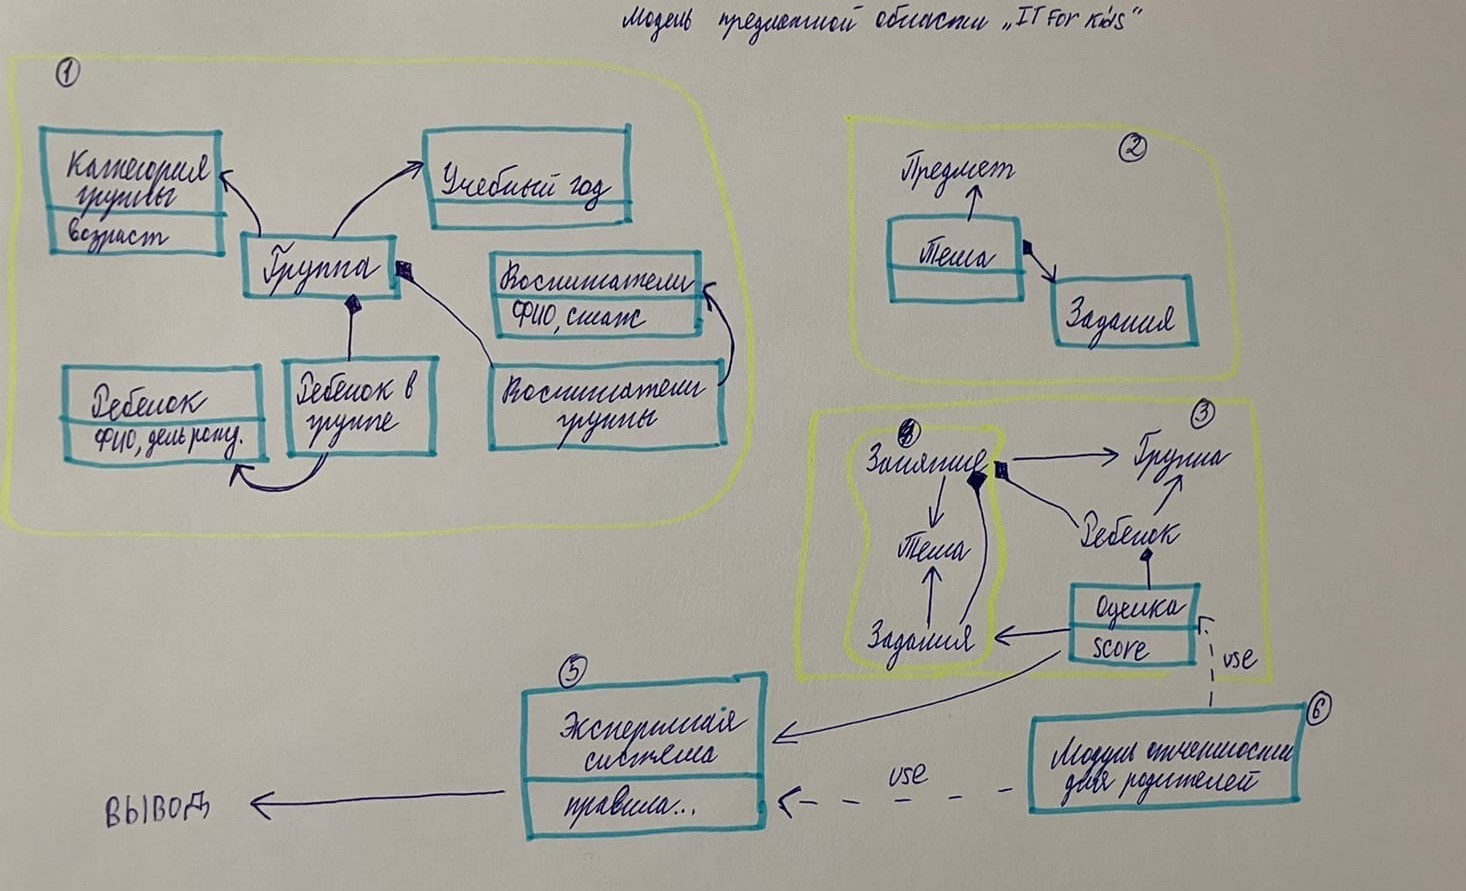 Модель предметной области „IT For Kids"
1
Категория
группы
возраст
Учебный год
Группа
Воспитатели
ФИО, стаж
Ребенок
ФИО, день рожд.
Ребенок в
группе
Воспитатели
группы
2
Предмет
Тема
Задания
3
4
Занятие
Группа
Тема
Ребенок
Задания
Оценка
score
use
5
Экспертная
система
правила...
use
6
Модуль отчетности
для родителей
ВЫВОД